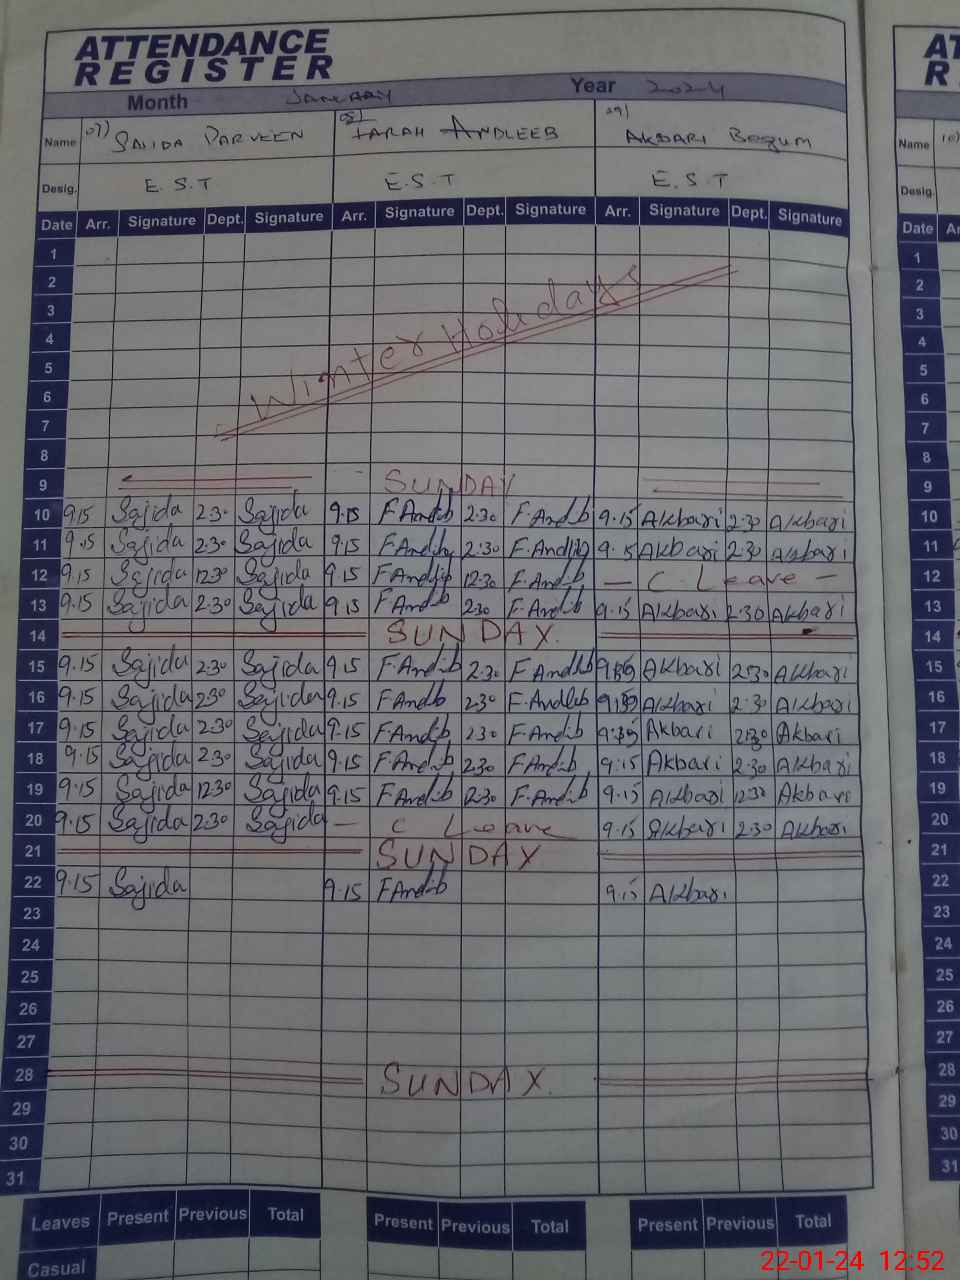 ATTENDANCE
REGISTER
Month January Year 2024
Name 07) Sajida Parveen 08) Farah Andleeb 09) Akbari Begum
Desig. E.S.T E.S.T E.S.T
Date Arr. Signature Dept. Signature Arr. Signature Dept. Signature Arr. Signature Dept. Signature
1
2
3
4
5
6
7
8
Winter Holidays
9 SUNDAY
10 9.15 Sajida 2.30 Sajida 9.15 F Andib 2.30 F.Andib 9.15 Akbari 2.30 Akbari
11 9.15 Sajida 2.30 Sajida 9.15 2.30 9.15 Akbari 2.30 Akbari
12 9.15 Sajida 12.30 Sajida 9.15 12.30 F.Andib — C Leave —
13 9.15 Sajida 2.30 Sajida 9.15 F Andib 2.30 F.Andib 9.15 Akbari 2.30 Akbari
14 SUNDAY.
15 9.15 Sajida 2.30 Sajida 9.15 F.Andib 2.30 F Andlb Akbari 2.30 Akbari
16 9.15 Sajida 2.30 Sajida 9.15 F.Andb 2.30 F.Andleb Akbari 2.30 Akbari
17 9.15 Sajida 2.30 Sajida 9.15 F.Andib 2.30 F.Andib Akbari 2.30 Akbari
18 9.15 Sajida 2.30 Sajida 9.15 F.Andib 2.30 F.Andib 9.15 Akbari 2.30 Akbari
19 9.15 Sajida 12.30 Sajida 9.15 F Andib 2.30 F.Andib 9.15 Akbari 12.30 Akbari
20 9.15 Sajida 2.30 Sajida — C Leave 9.15 Akbari 2.30 Akbari
21 SUNDAY
22 9.15 Sajida 9.15 F Andib 9.15 Akbari
23
24
25
26
27
28 SUNDAY.
29
30
31
Leaves Present Previous Total Present Previous Total Present Previous Total
Casual
AT
R
Name 10)
Desig.
Date Ar
1
2
3
4
5
6
7
8
9
10
11
12
13
14
15
16
17
18
19
20
21
22
23
24
25
26
27
28
29
30
31
22-01-24 12:52